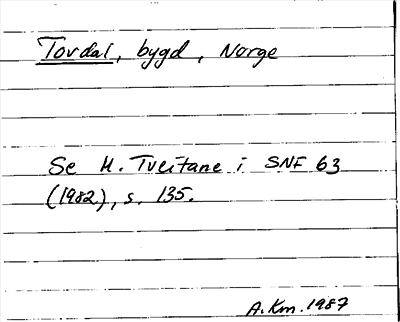 Tovdal, bygd, Norge
Se M. Tveitane i SNF 63
(1982), s. 135.
A.Km. 1987